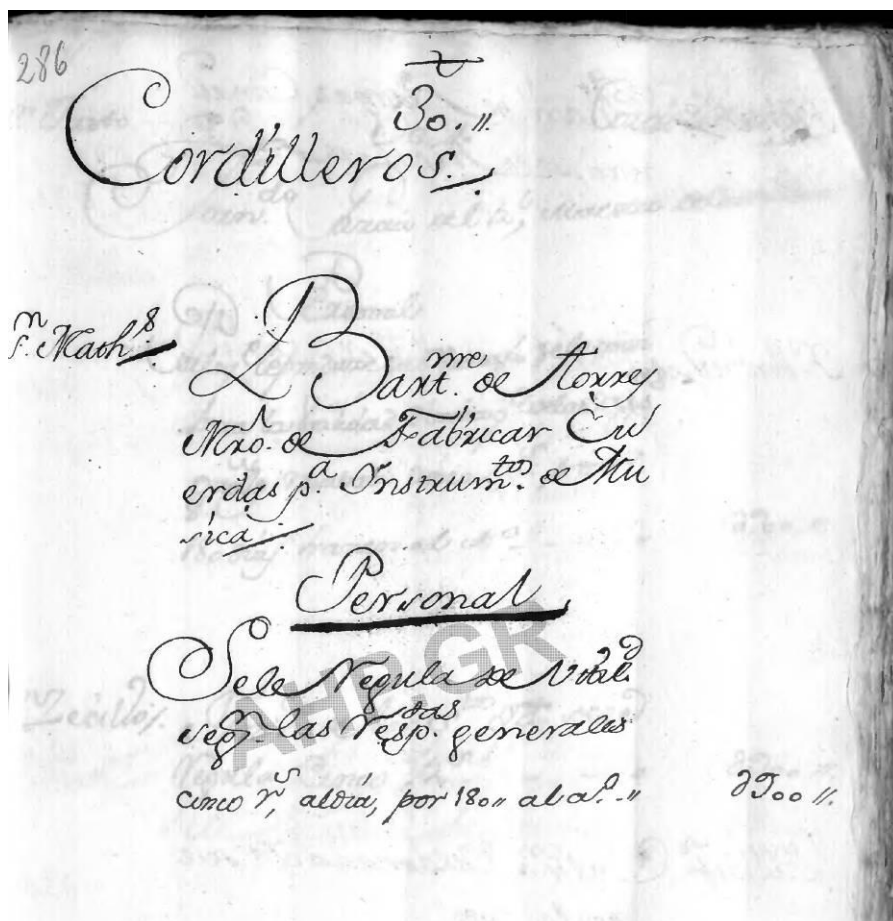 286
30.
Cordilleros.
Sn. Mathˢ
Bartme. de Torres
Mro. de Fabricar Cu
erdas pa. Ynstrumtos. de Mu
sica
Personal
Sele Regula de Vtild.
segn. las Resptas. generales
cinco rs, aldia, por 180 al aº. 900
AHP.GR